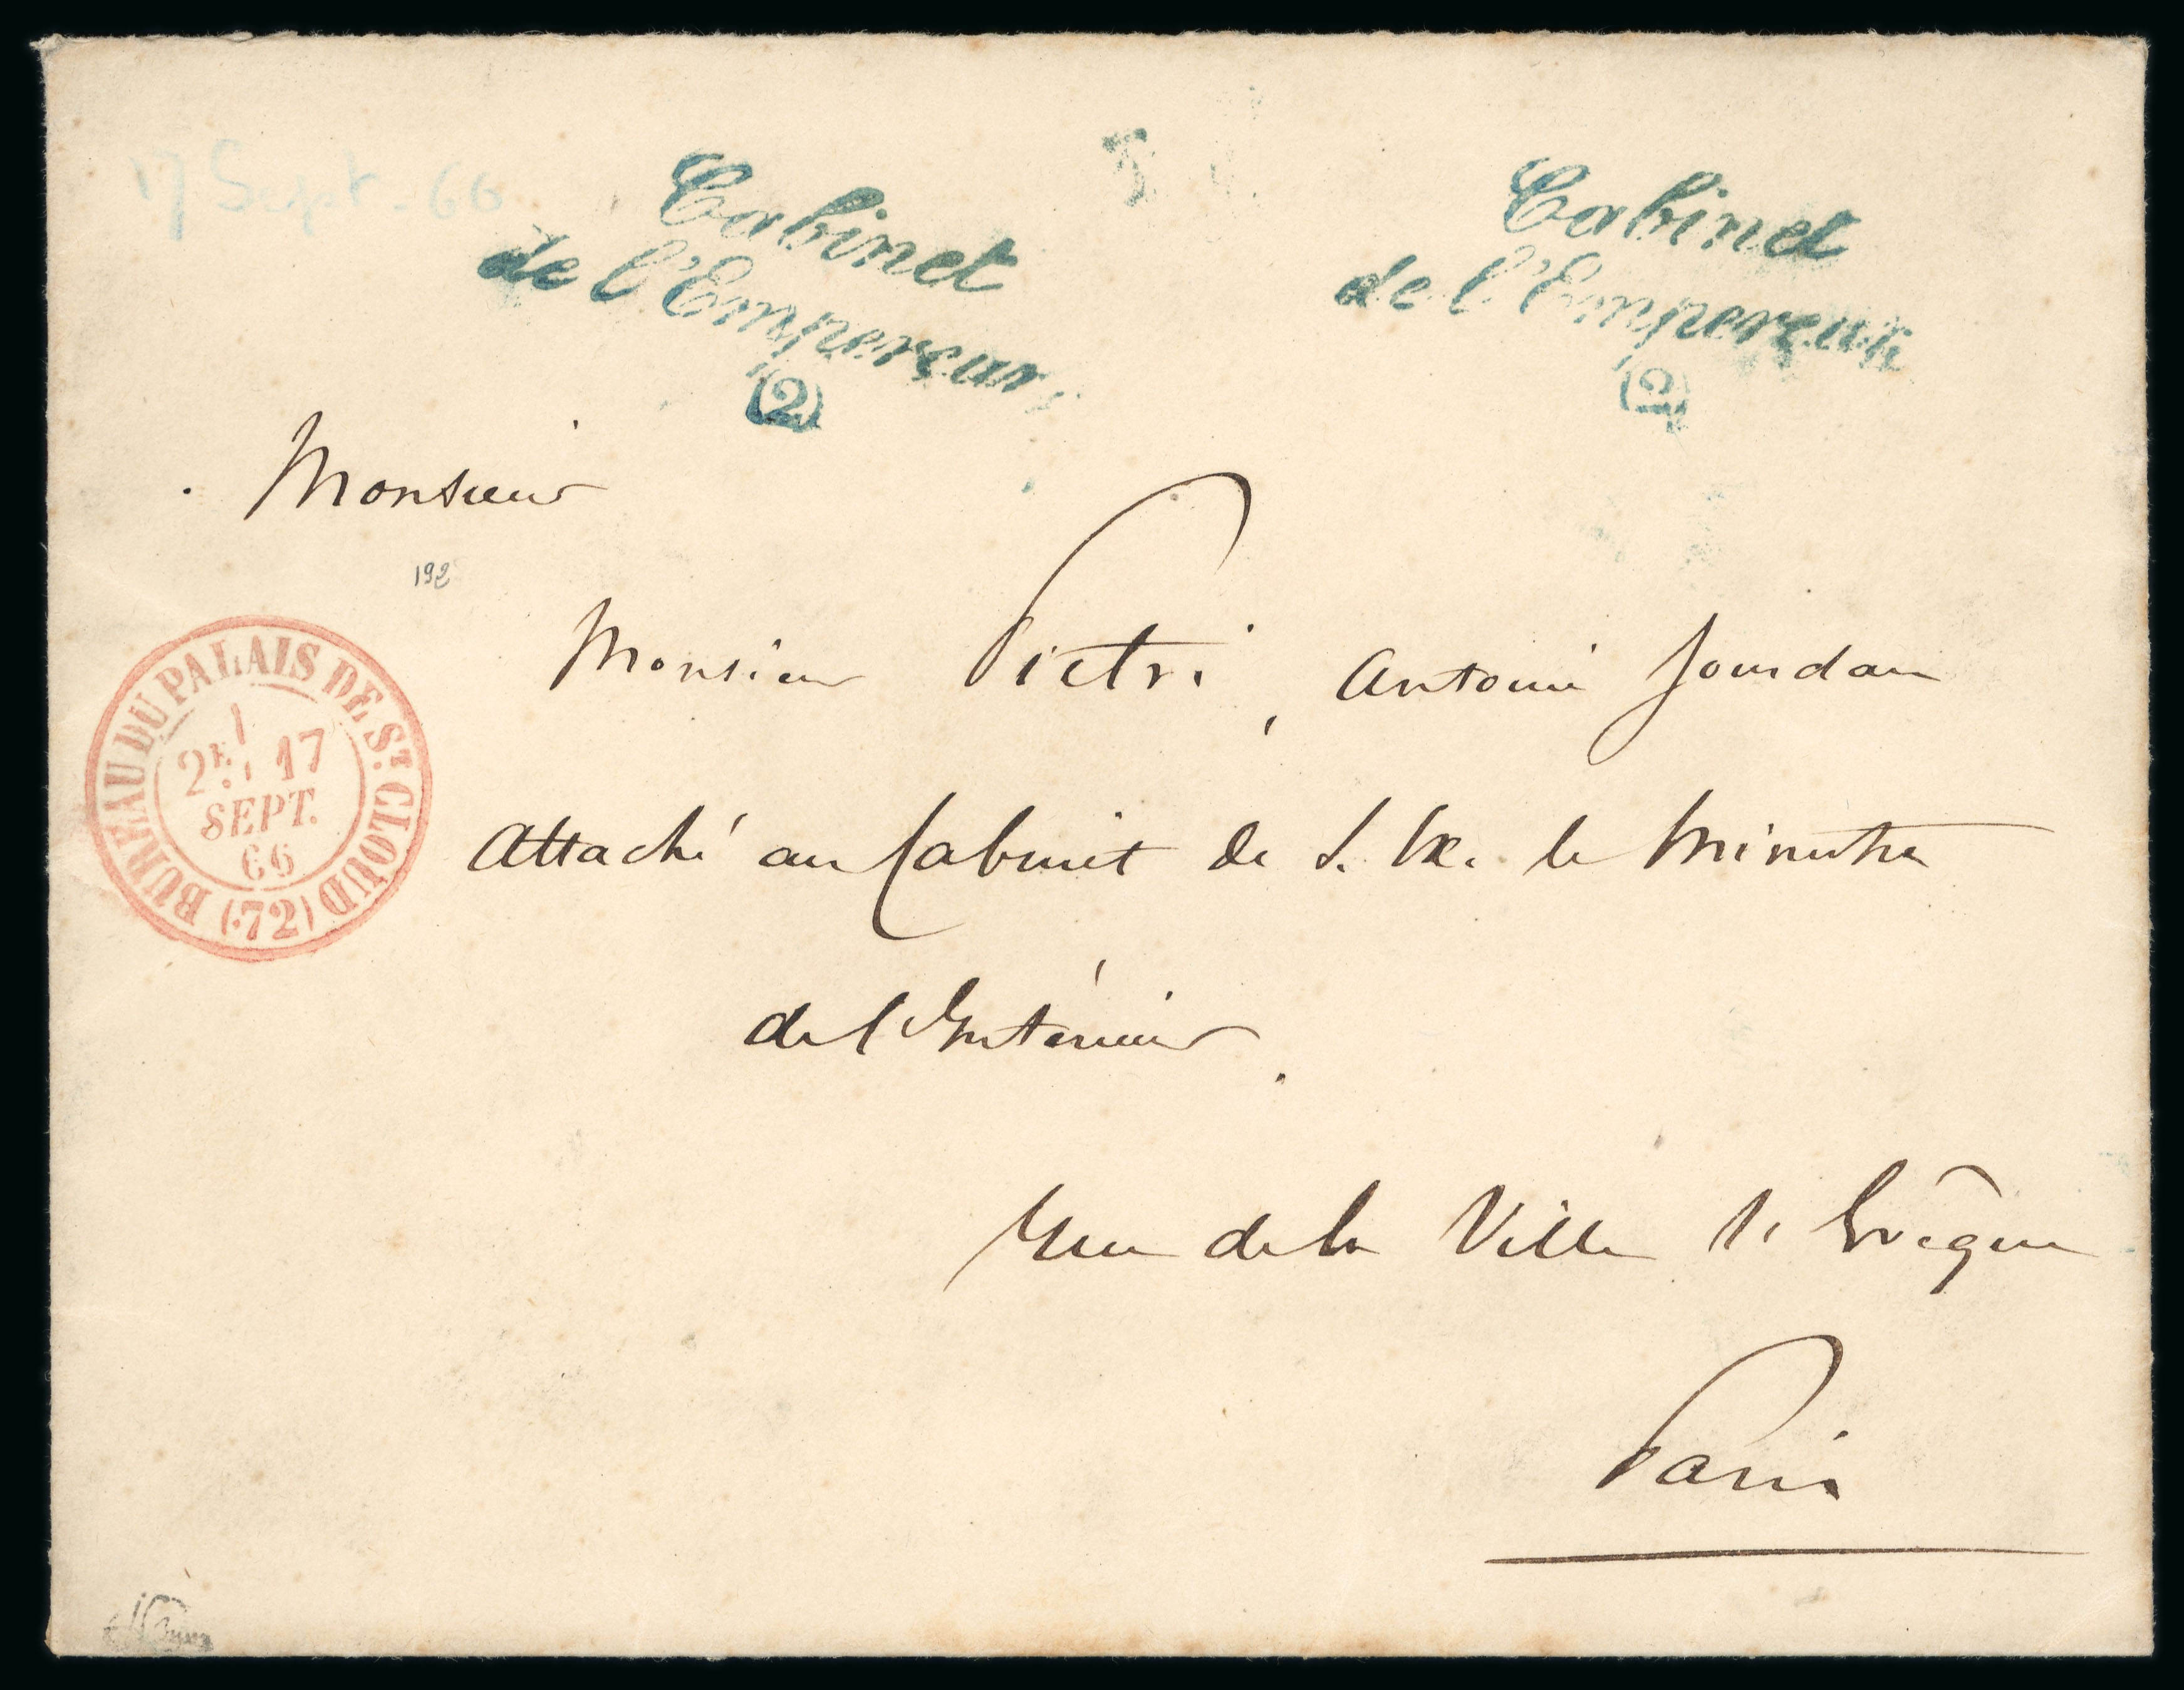 17 Sept. 66
Cabinet
de l'Empereur
(2)
Cabinet
de l'Empereur
(2)
Monsieur
192
Monsieur Pietri, Antoine Jourdan
Attaché au Cabinet de S. Ex. le Ministre
de l'Intérieur.
Rue de la Ville l'Evêque
Paris
BUREAU DU PALAIS DE ST. CLOUD
1
2E 17
SEPT.
66
(72)